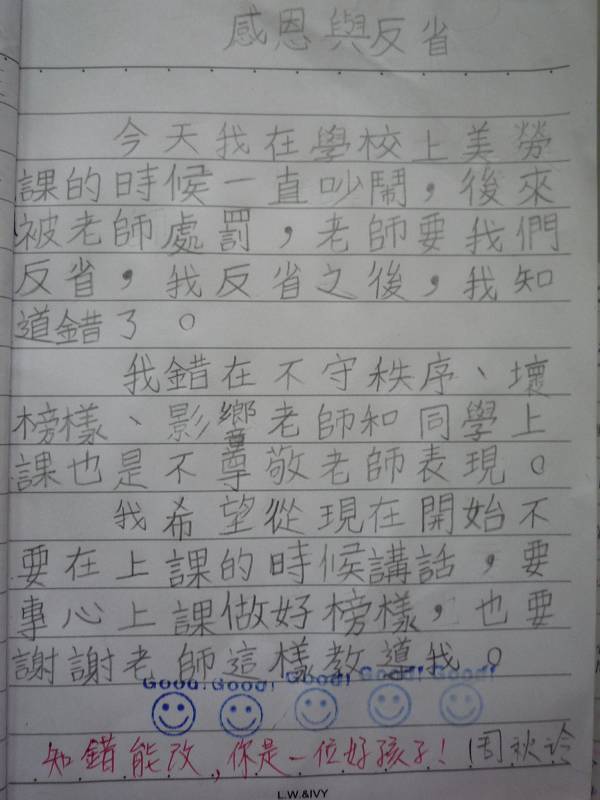 感恩與反省
今天我在學校上美勞
課的時候一直吵鬧，後來
被老師處罰，老師要我們
反省，我反省之後，我知
道錯了。
我錯在不守秩序、壞
榜樣、影響老師和同學上
課也是不尊敬老師表現。
我希望從現在開始不
要在上課的時候講話，要
專心上課做好榜樣，也要
謝謝老師這樣教導我。
Good! Good! Good! Good! Good!
知錯能改，你是一位好孩子！周秋
L.W.&IVY